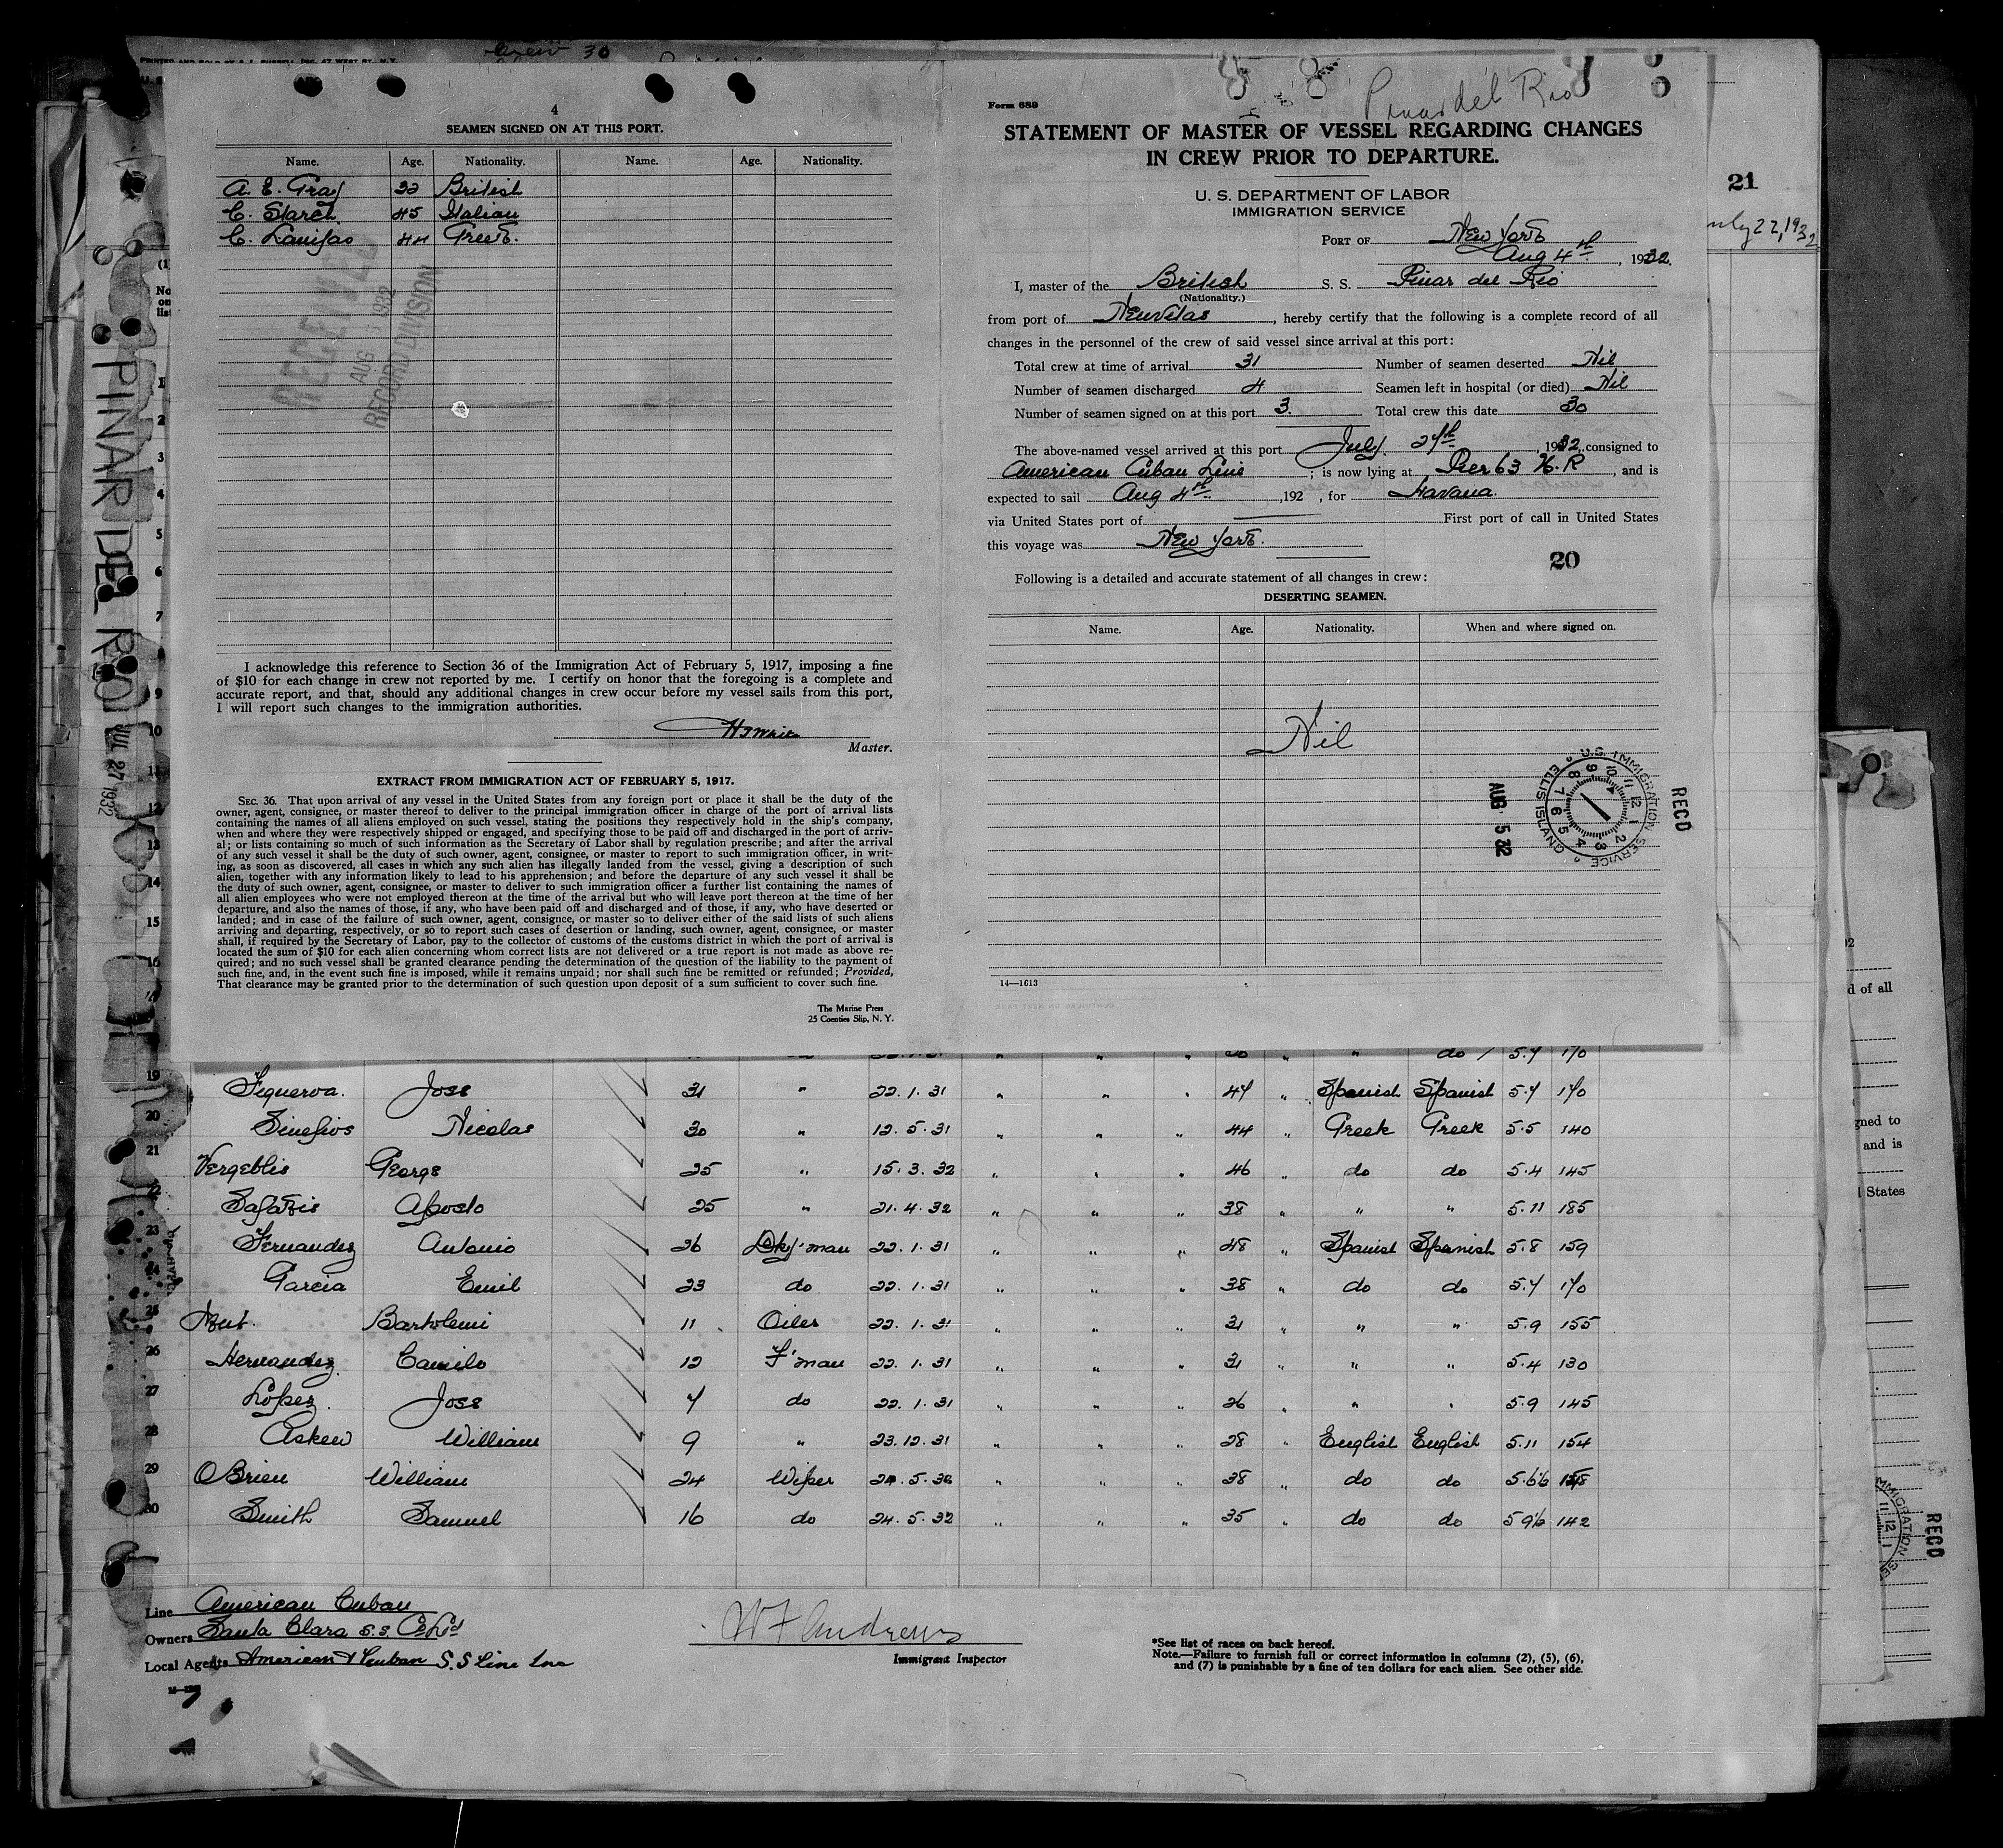 Crew 30
PRINTED AND SOLD BY
47 WEST ST., N.Y.
4
SEAMEN SIGNED ON AT THIS PORT.
Name. Age. Nationality. Name. Age. Nationality.
A. E. Gray British
C. Starch 45 Italian
C. 44 Greek.
RECEIVED
AUG 1932
RECORD DIVISION
I acknowledge this reference to Section 36 of the Immigration Act of February 5, 1917, imposing a fine
of $10 for each change in crew not reported by me. I certify on honor that the foregoing is a complete and
accurate report, and that, should any additional changes in crew occur before my vessel sails from this port,
I will report such changes to the immigration authorities.
Master.
EXTRACT FROM IMMIGRATION ACT OF FEBRUARY 5, 1917.
SEC. 36. That upon arrival of any vessel in the United States from any foreign port or place it shall be the duty of the
owner, agent, consignee, or master thereof to deliver to the principal immigration officer in charge of the port of arrival lists
containing the names of all aliens employed on such vessel, stating the positions they respectively hold in the ship's company,
when and where they were respectively shipped or engaged, and specifying those to be paid off and discharged in the port of arriv-
al; or lists containing so much of such information as the Secretary of Labor shall by regulation prescribe; and after the arrival
of any such vessel it shall be the duty of such owner, agent, consignee, or master to report to such immigration officer, in writ-
ing, as soon as discovered, all cases in which any such alien has illegally landed from the vessel, giving a description of such
alien, together with any information likely to lead to his apprehension; and before the departure of any such vessel it shall be
the duty of such owner, agent, consignee, or master to deliver to such immigration officer a further list containing the names of
all alien employees who were not employed thereon at the time of the arrival but who will leave port thereon at the time of her
departure, and also the names of those, if any, who have been paid off and discharged and of those, if any, who have deserted or
landed; and in case of the failure of such owner, agent, consignee, or master so to deliver either of the said lists of such aliens
arriving and departing, respectively, or so to report such cases of desertion or landing, such owner, agent, consignee, or master
shall, if required by the Secretary of Labor, pay to the collector of customs of the customs district in which the port of arrival is
located the sum of $10 for each alien concerning whom correct lists are not delivered or a true report is not made as above re-
quired; and no such vessel shall be granted clearance pending the determination of the question of the liability to the payment of
such fine, and, in the event such fine is imposed, while it remains unpaid; nor shall such fine be remitted or refunded; Provided,
That clearance may be granted prior to the determination of such question upon deposit of a sum sufficient to cover such fine.
The Marine Press
25 Coenties Slip, N. Y.
Form 689
Pinar del Rio
STATEMENT OF MASTER OF VESSEL REGARDING CHANGES
IN CREW PRIOR TO DEPARTURE.
U. S. DEPARTMENT OF LABOR
IMMIGRATION SERVICE
PORT OF New York
Aug 4th, 1932.
I, master of the British S. S. Pinar del Rio
(Nationality.)
from port of Neuvitas, hereby certify that the following is a complete record of all
changes in the personnel of the crew of said vessel since arrival at this port:
Total crew at time of arrival 31 Number of seamen deserted Nil
Number of seamen discharged 4 Seamen left in hospital (or died) Nil
Number of seamen signed on at this port 3. Total crew this date 30
The above-named vessel arrived at this port July 27th, 1932, consigned to
American Cuban Line; is now lying at Pier 63 N.R, and is
expected to sail Aug 4th, 192 , for Havana.
via United States port of First port of call in United States
this voyage was New York.
20
Following is a detailed and accurate statement of all changes in crew:
DESERTING SEAMEN.
Name. Age. Nationality. When and where signed on.
Nil
U.S. IMMIGRATION SERVICE ELLIS ISLAND
AUG 5 32
RECD
14—1613
21
July 22, 1932
PINAR DEL RIO
JUL 27 1932
do 5.7 170
19 Figueroa. Jose 31 " 22.1.31 " " " 47 " Spanish Spanish 5.7 170
20 Nicolas 30 " 12.5.31 " " " 44 " Greek Greek 5.5 140
21 Vergeblis George 25 " 15.3.32 " " " 46 " do do 5.4 145
22 Aposto 25 " 21.4.32 " " " 38 " " " 5.11 185
23 Fernandez Antonio 26 Dky'man 22.1.31 " " " 48 " Spanish Spanish 5.8 159
24 Garcia Emil 23 do 22.1.31 " " " 38 " do do 5.7 170
25 Bartolemi 11 Oiler 22.1.31 " " " 31 " " " 5.9 155
26 Hernandez Camilo 12 F'man 22.1.31 " " " 31 " " " 5.4 130
27 Lopez Jose 7 do 22.1.31 " " " 26 " " " 5.9 145
28 Askew William 9 " 23.12.31 " " " 28 " English English 5.11 154
29 OBrien William 24 Wiper 24.5.32 " " " 38 " do do 5.6½
30 Smith Samuel 16 do 24.5.32 " " " 35 " do do 5 9½ 142
Line American Cuban
Owners Santa Clara S.S. Co Ltd
Local Agents American & Cuban S.S Line Inc
W F Andrews
Immigrant Inspector
*See list of races on back hereof.
Note.—Failure to furnish full or correct information in columns (2), (5), (6),
and (7) is punishable by a fine of ten dollars for each alien. See other side.
d of all
gned to
and is
States
RECD